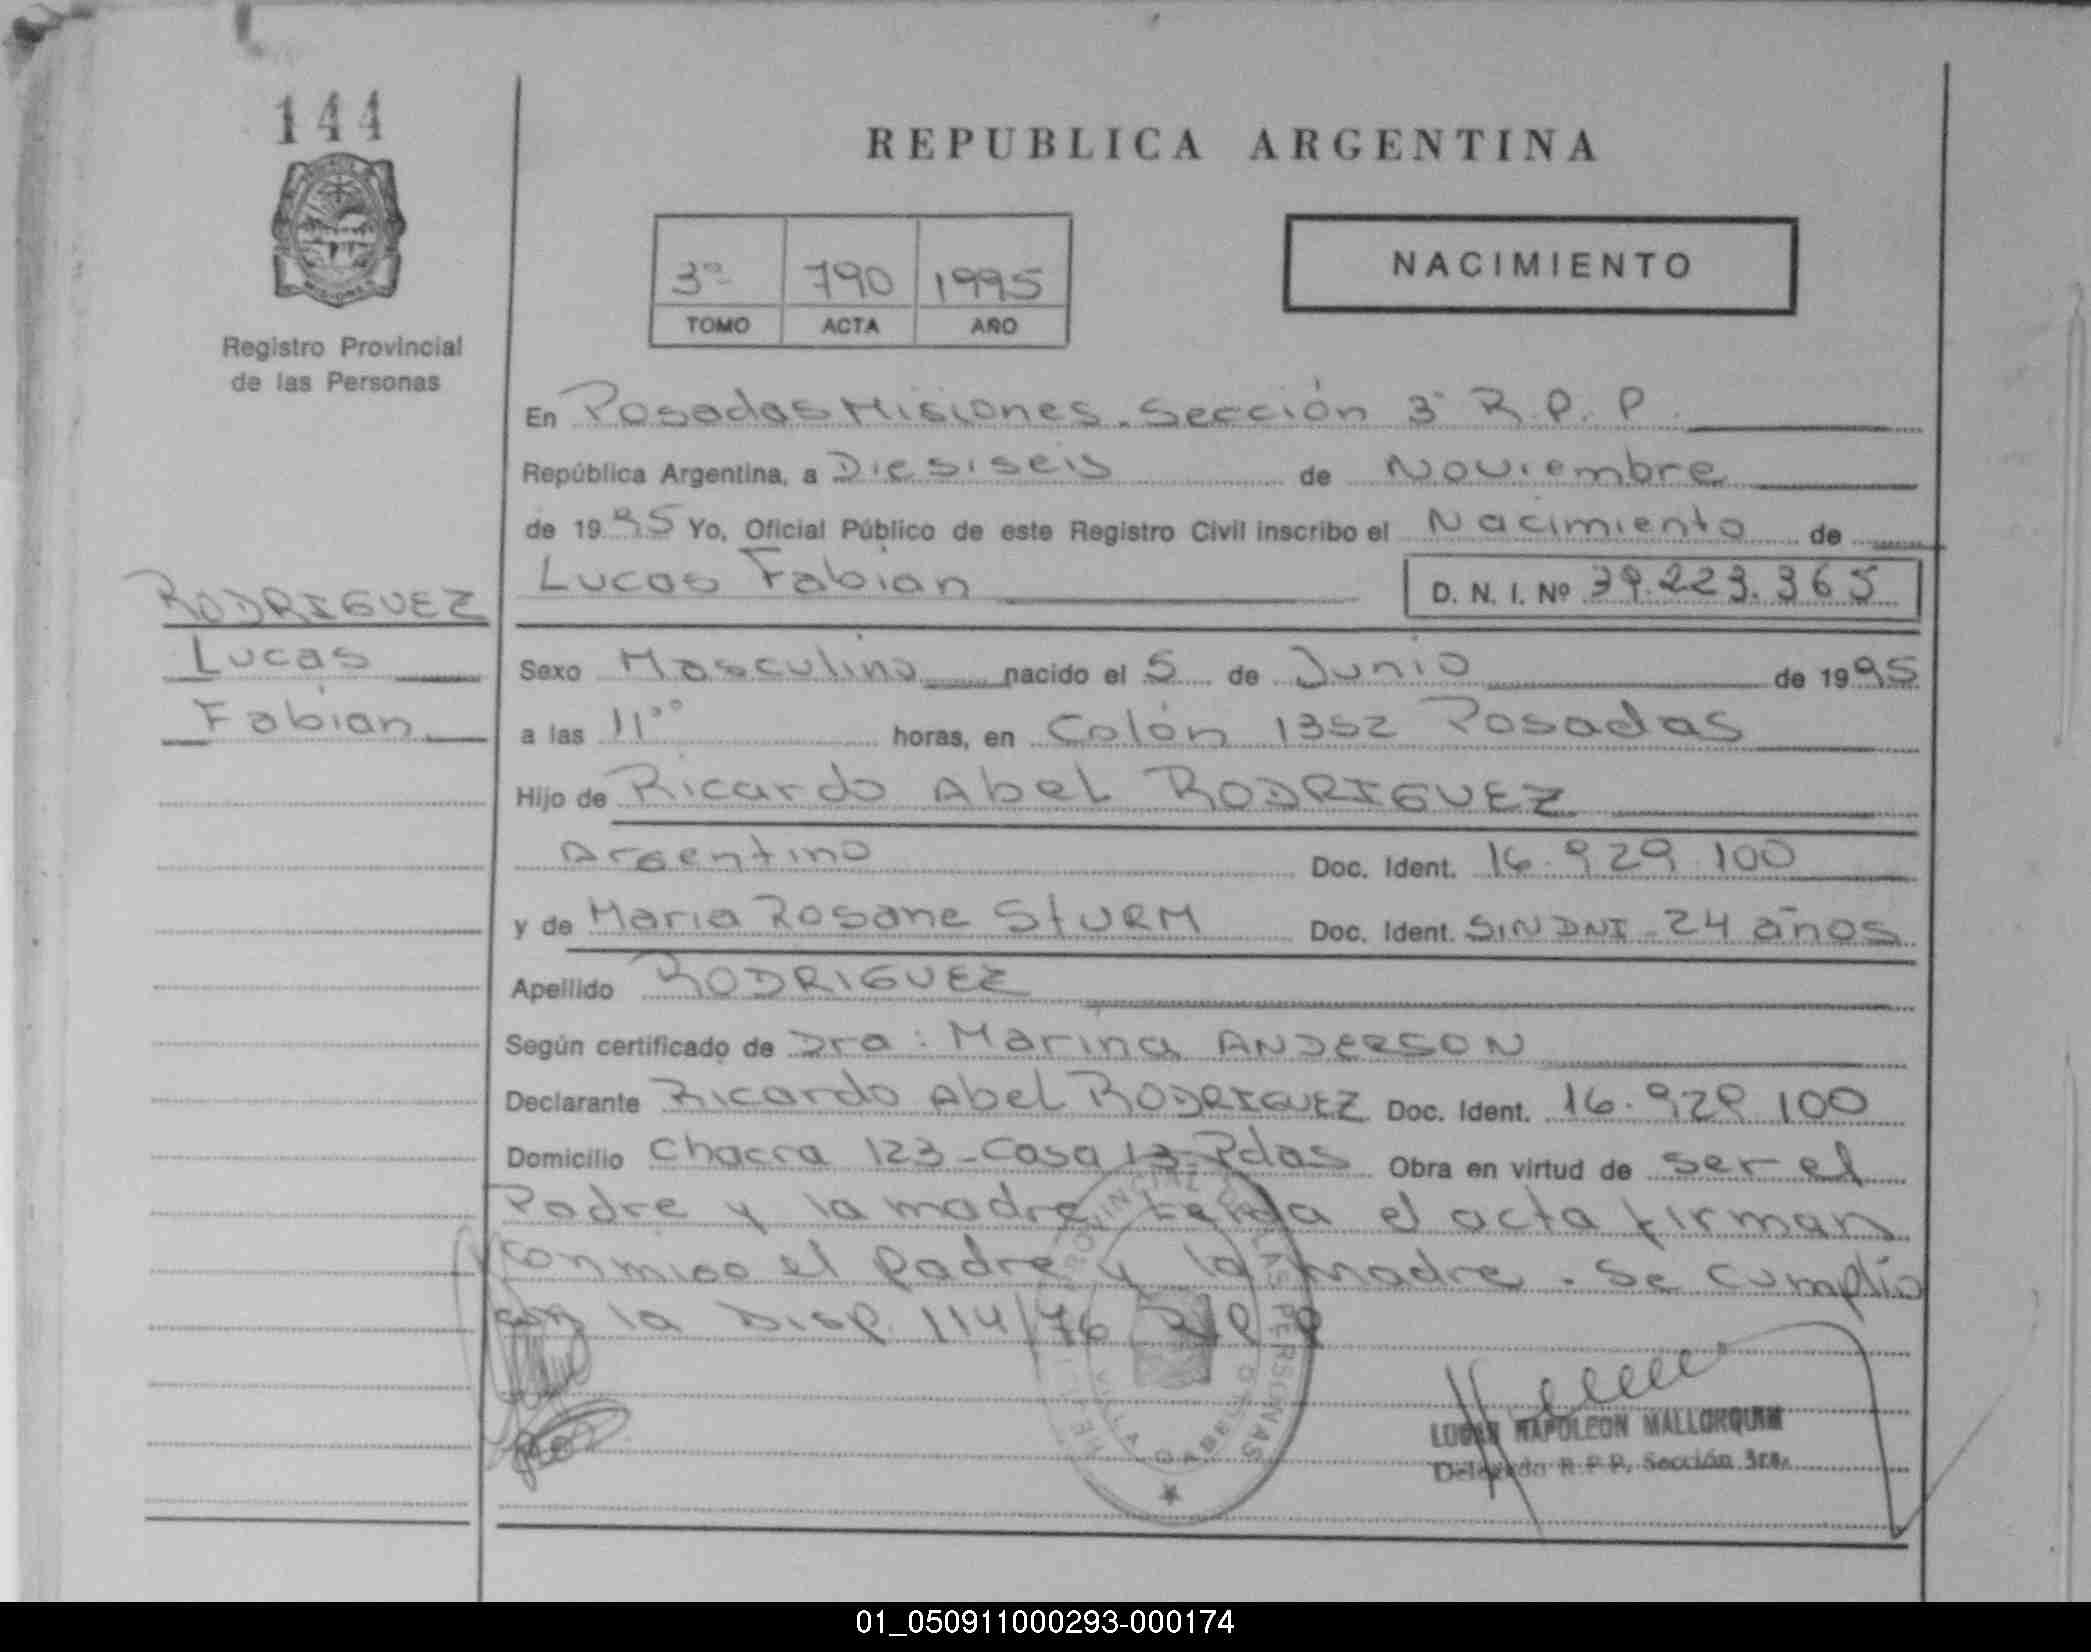 144
REPUBLICA ARGENTINA
NACIMIENTO
3º 790 1995
TOMO ACTA AÑO
Registro Provincial
de las Personas
En Posadas Misiones. Sección 3ª R.P.P.
República Argentina, a Diesiseis de Noviembre
de 1995 Yo, Oficial Público de este Registro Civil inscribo el Nacimiento de
Lucas Fabian D. N. I. Nº 39.223.365
RODRIGUEZ
Lucas
Fabian
Sexo Masculino nacido el 5 de Junio de 1995
a las 11ºº horas, en Colón 1352 Posadas
Hijo de Ricardo Abel RODRIGUEZ
Argentino Doc. Ident. 16.929.100
y de Maria Rosane StURM Doc. Ident. SIN DNI - 24 años
Apellido RODRIGUEZ
Según certificado de Dra: Marina ANDERSON
Declarante Ricardo Abel RODRIGUEZ Doc. Ident. 16.929 100
Domicilio Chacra 123 - Casa 13 - Pdas Obra en virtud de ser el
Padre y la madre Leida el acta firman
conmigo el padre y la madre. Se cumplio
con la Disp. 114/76 R P P
VILLA CABELLO
LUCAN NAPOLEON MALLORQUIN
Delegado R.P.P. Sección 3ra.
01_050911000293-000174